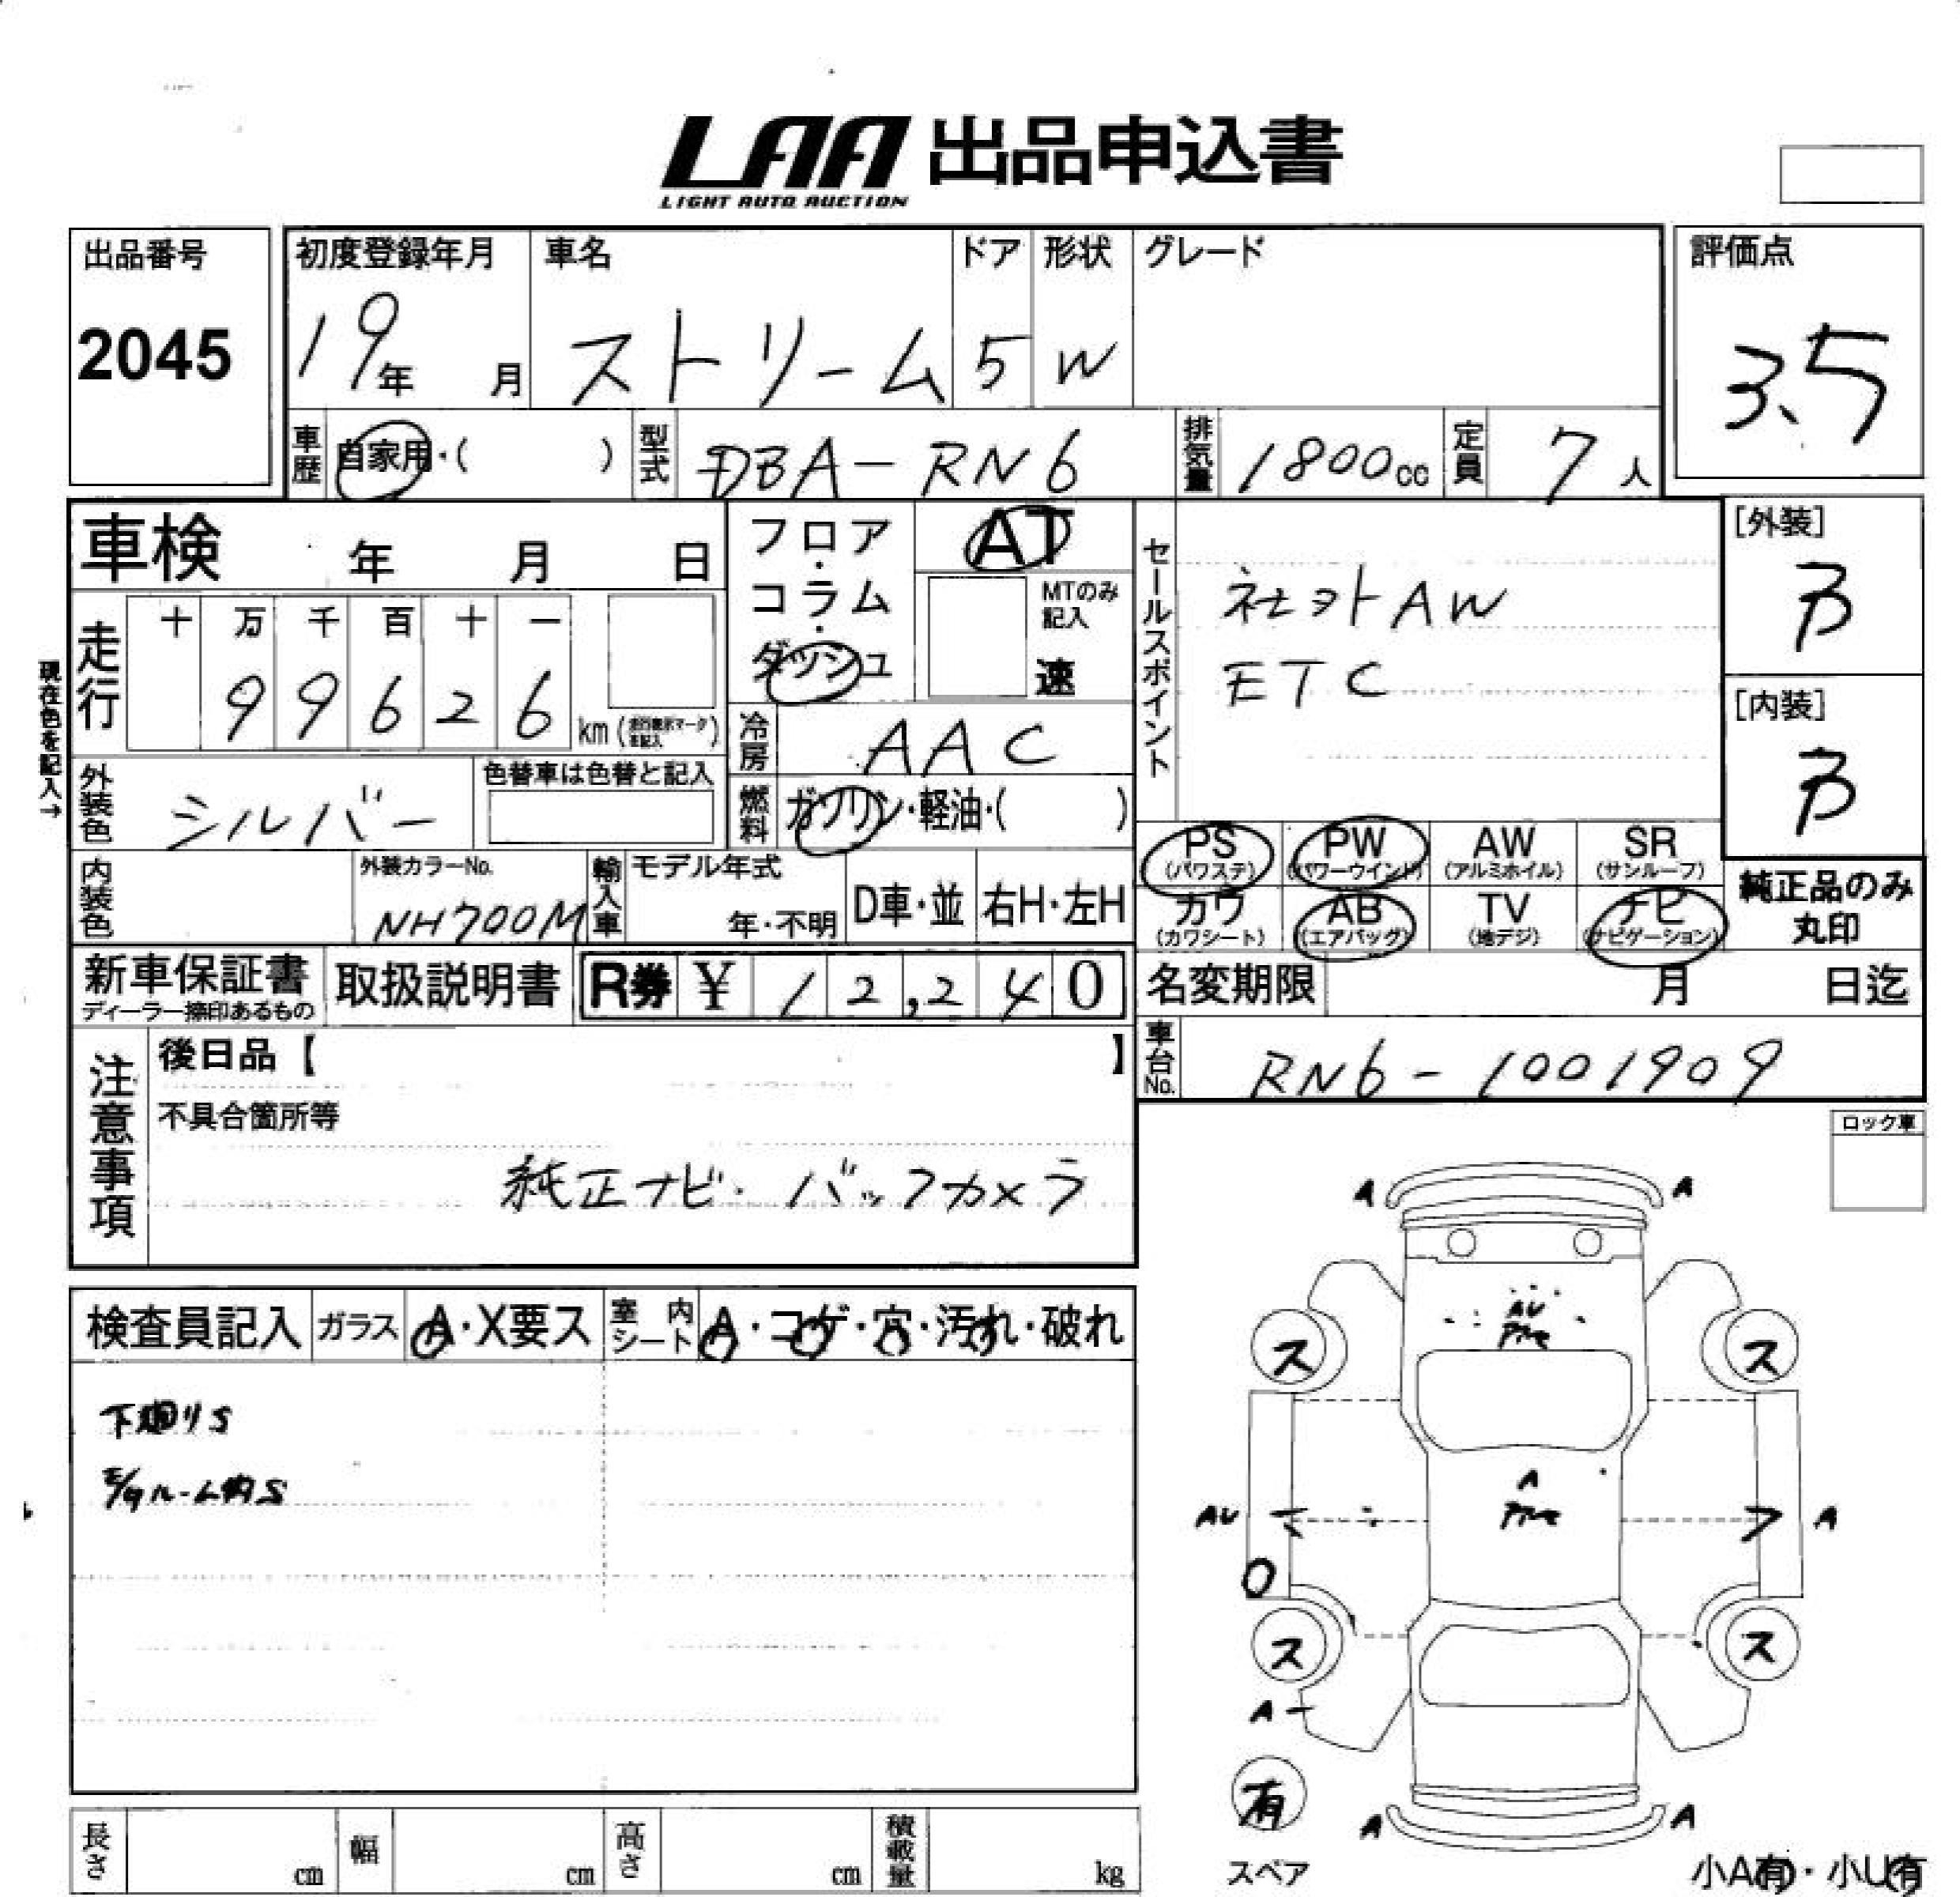 LAA 出品申込書
LIGHT AUTO AUCTION
出品番号
2045
初度登録年月
19年 月
車名
ストリーム
ドア
5
形状
W
グレード
評価点
3.5
車歴 自家用・( )
型式 DBA-RN6
排気量 1800cc
定員 7人
車検 年 月 日
フロア・コラム・ダッシュ
AT
MTのみ記入
速
セールスポイント
社外AW
ETC
[外装]
B
[内装]
B
現在色を記入→
走行
十 万 千 百 十 一
9 9 6 2 6 km
冷房 AAC
外装色 シルバー
色替車は色替と記入
燃料 ガソリン・軽油・( )
PS (パワステ)
PW (パワーウインド)
AW (アルミホイル)
SR (サンルーフ)
カワ (カワシート)
AB (エアバッグ)
TV (地デジ)
ナビ (ナビゲーション)
純正品のみ
丸印
内装色
外装カラーNo.
NH700M
輸入車
モデル年式
年・不明
D車・並
右H・左H
新車保証書
ディーラー捺印あるもの
取扱説明書
R券 ¥ 12,240
名変期限 月 日迄
車台No. RN6-1001909
注意事項
後日品【 】
不具合箇所等
純正ナビ・バックカメラ
ロック車
検査員記入
ガラス A・X要ス
室内シート A・コゲ・穴・汚れ・破れ
下廻りS
ルーム内S
A A
AU
ス ス
A
AU A
ス ス
A
有
スペア
A A
小A有・小U有
長さ cm
幅 cm
高さ cm
積載量 kg